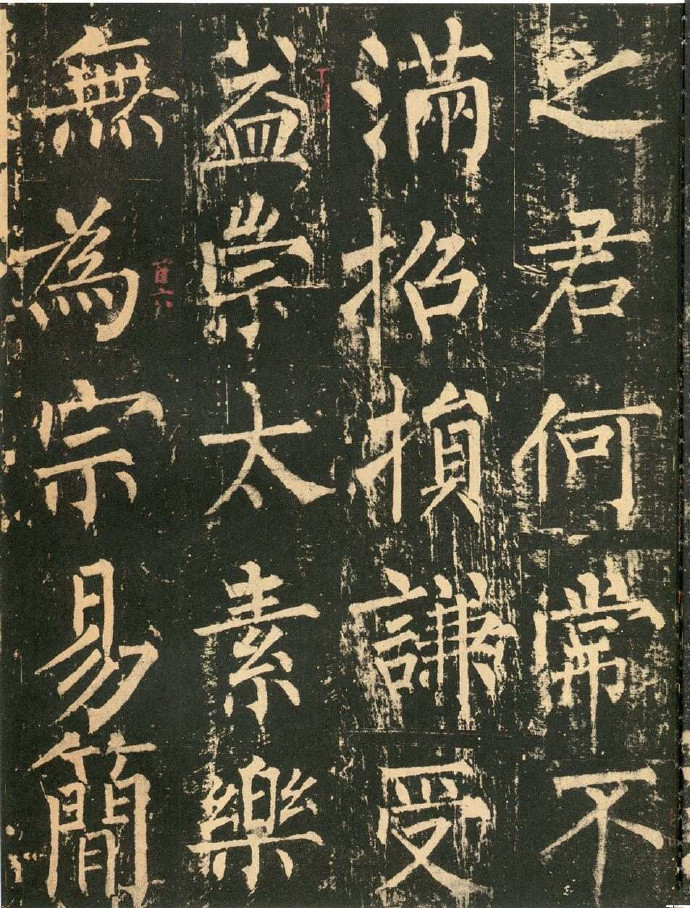 之君何常不
滿招損謙受
益崇太素樂
無為宗易簡